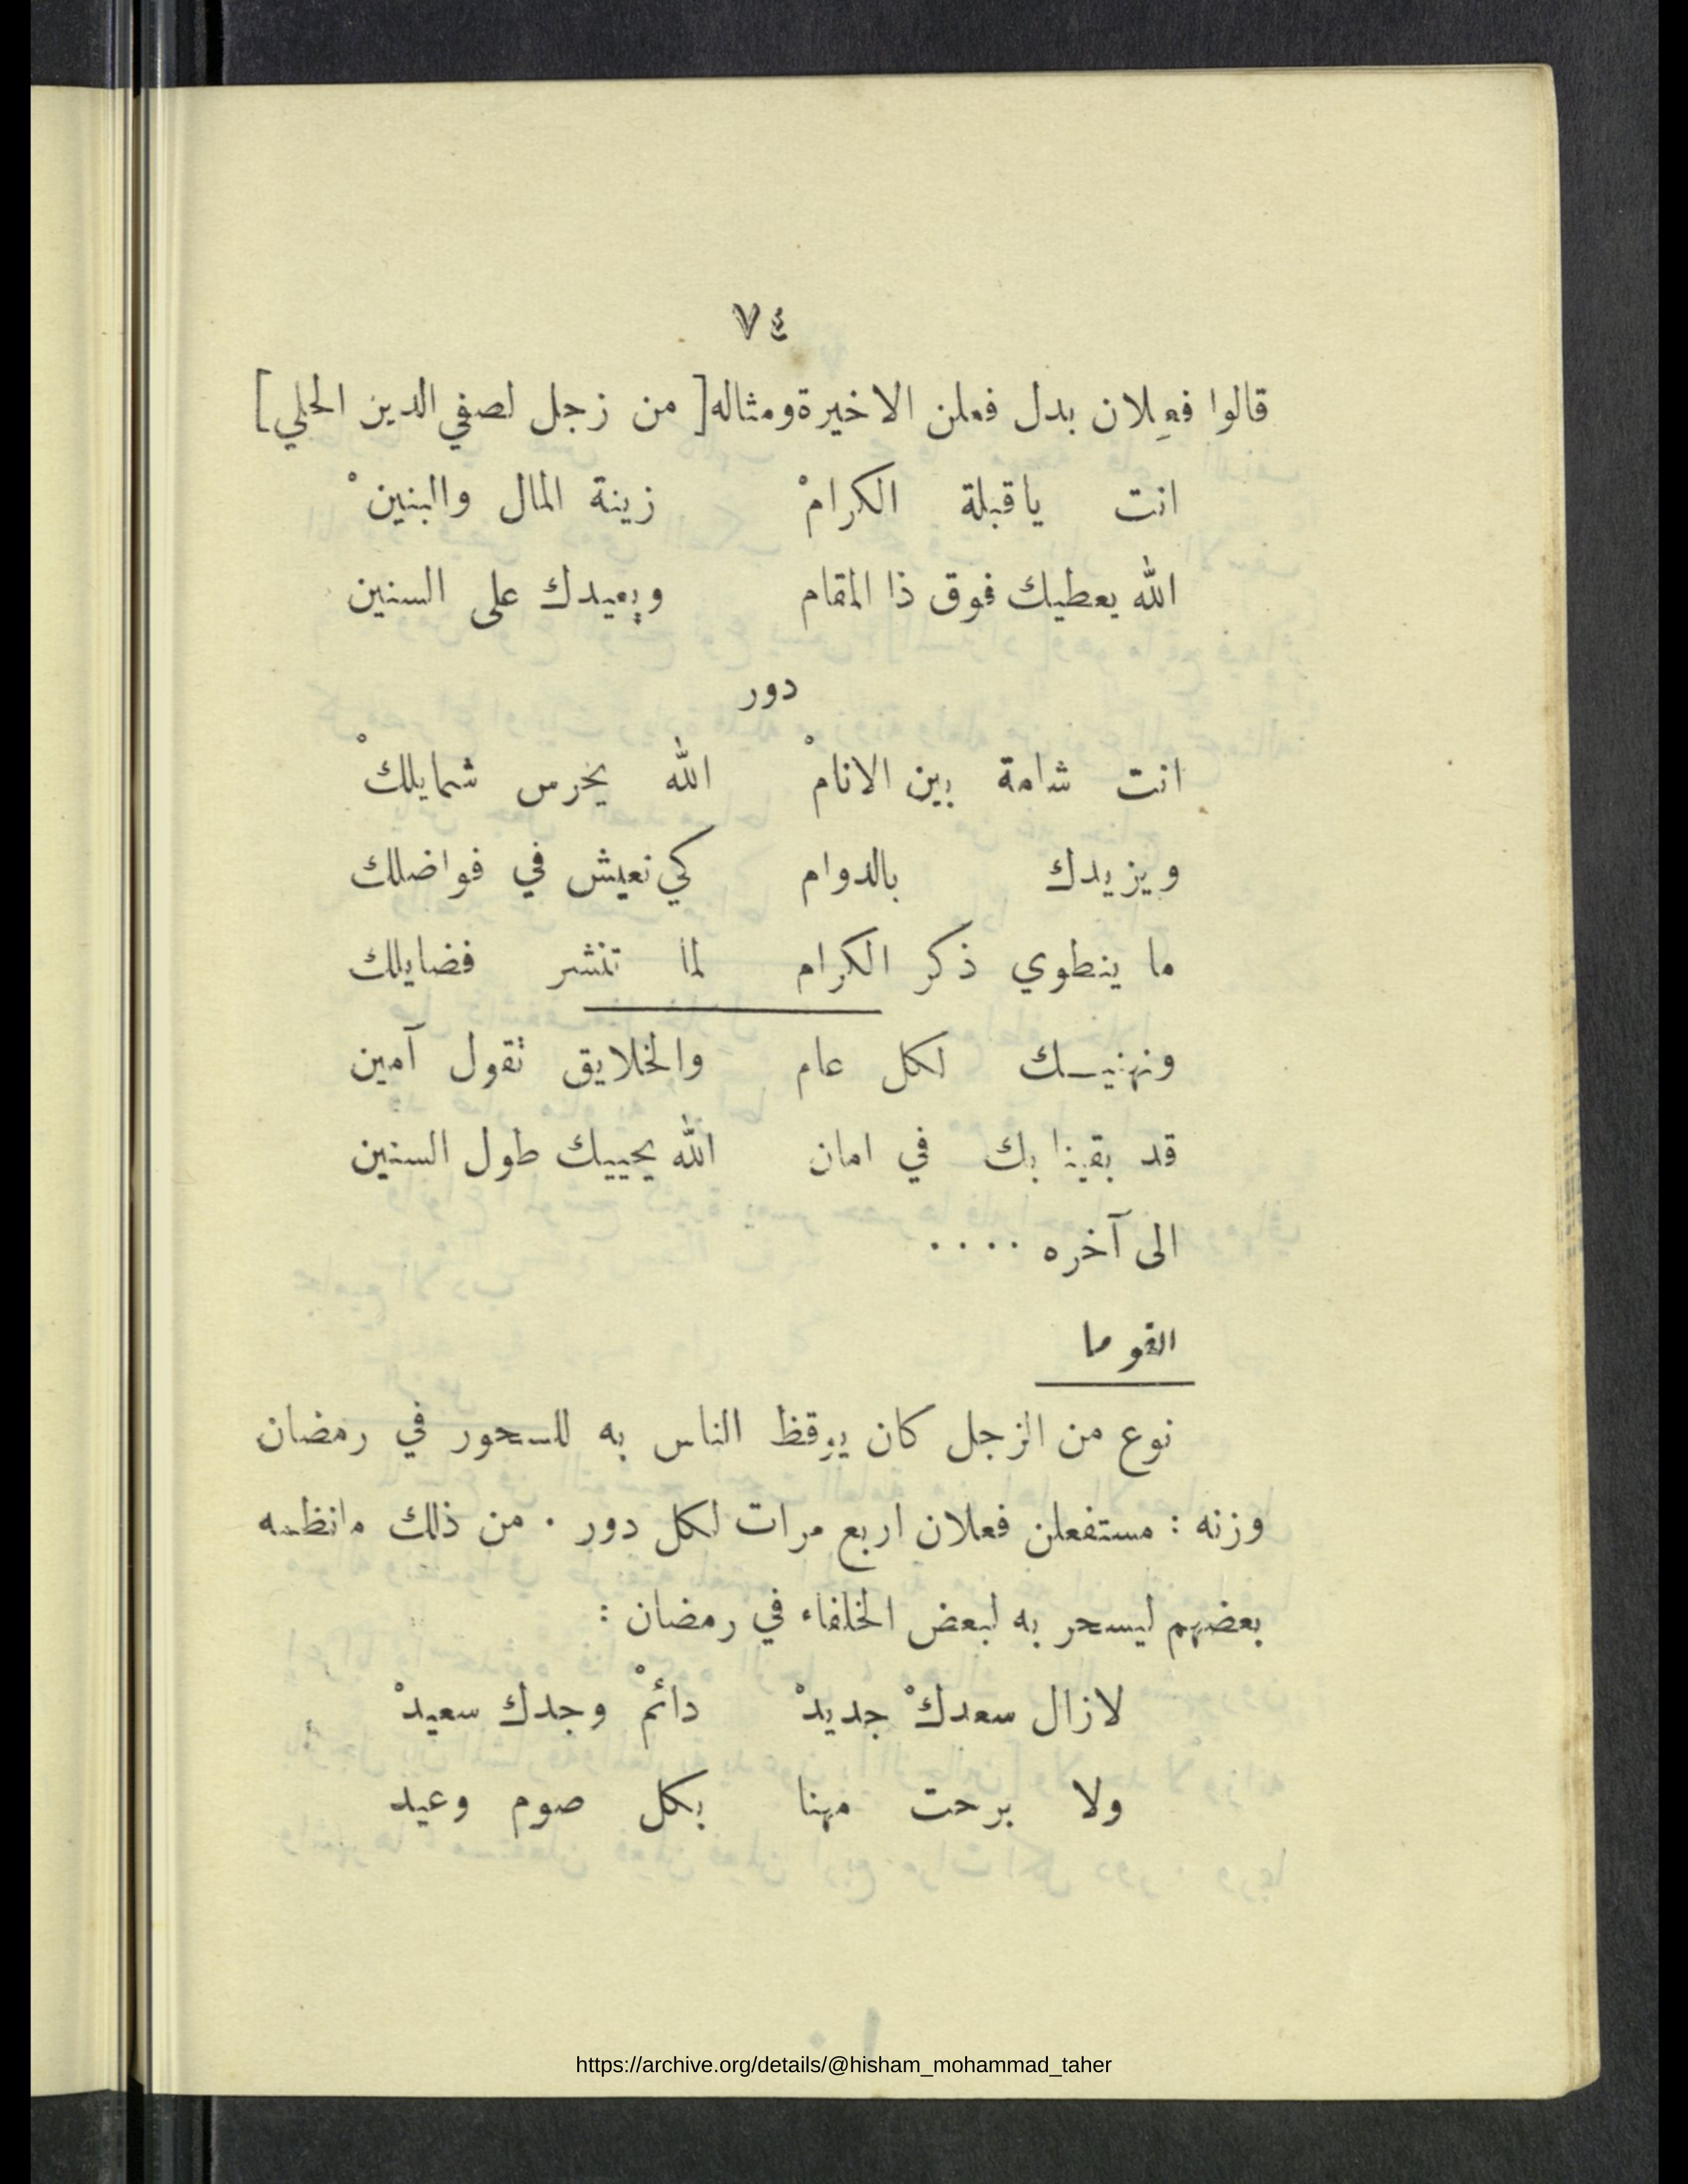 ٧٤
قالوا فعِلان بدل فعلن الاخيرة ومثاله [ من زجل لصفي الدين الحلي ]
انت ياقبلة الكرامْ زينة المال والبنينْ
الله يعطيك فوق ذا المقام ويعيدك على السنين
دور
انت شامة بين الانامْ الله يخرس شمايلكْ
ويزيدك بالدوام كي نعيش في فواضلك
ما ينطوي ذكر الكرام لما تنشر فضايلك
ونهنيـك لكل عام والخلايق تقول آمين
قد بقينا بك في امان الله يحييك طول السنين
الى آخره ....
القوما
نوع من الزجل كان يوقظ الناس به للسحور في رمضان
وزنه : مستفعلن فعلان اربع مرات لكل دور . من ذلك مانظمه
بعضهم ليسحر به لبعض الخلفاء في رمضان :
لازال سعدكْ جديدْ دائمْ وجدك سعيدْ
ولا برحت مهنا بكل صوم وعيد
https://archive.org/details/@hisham_mohammad_taher